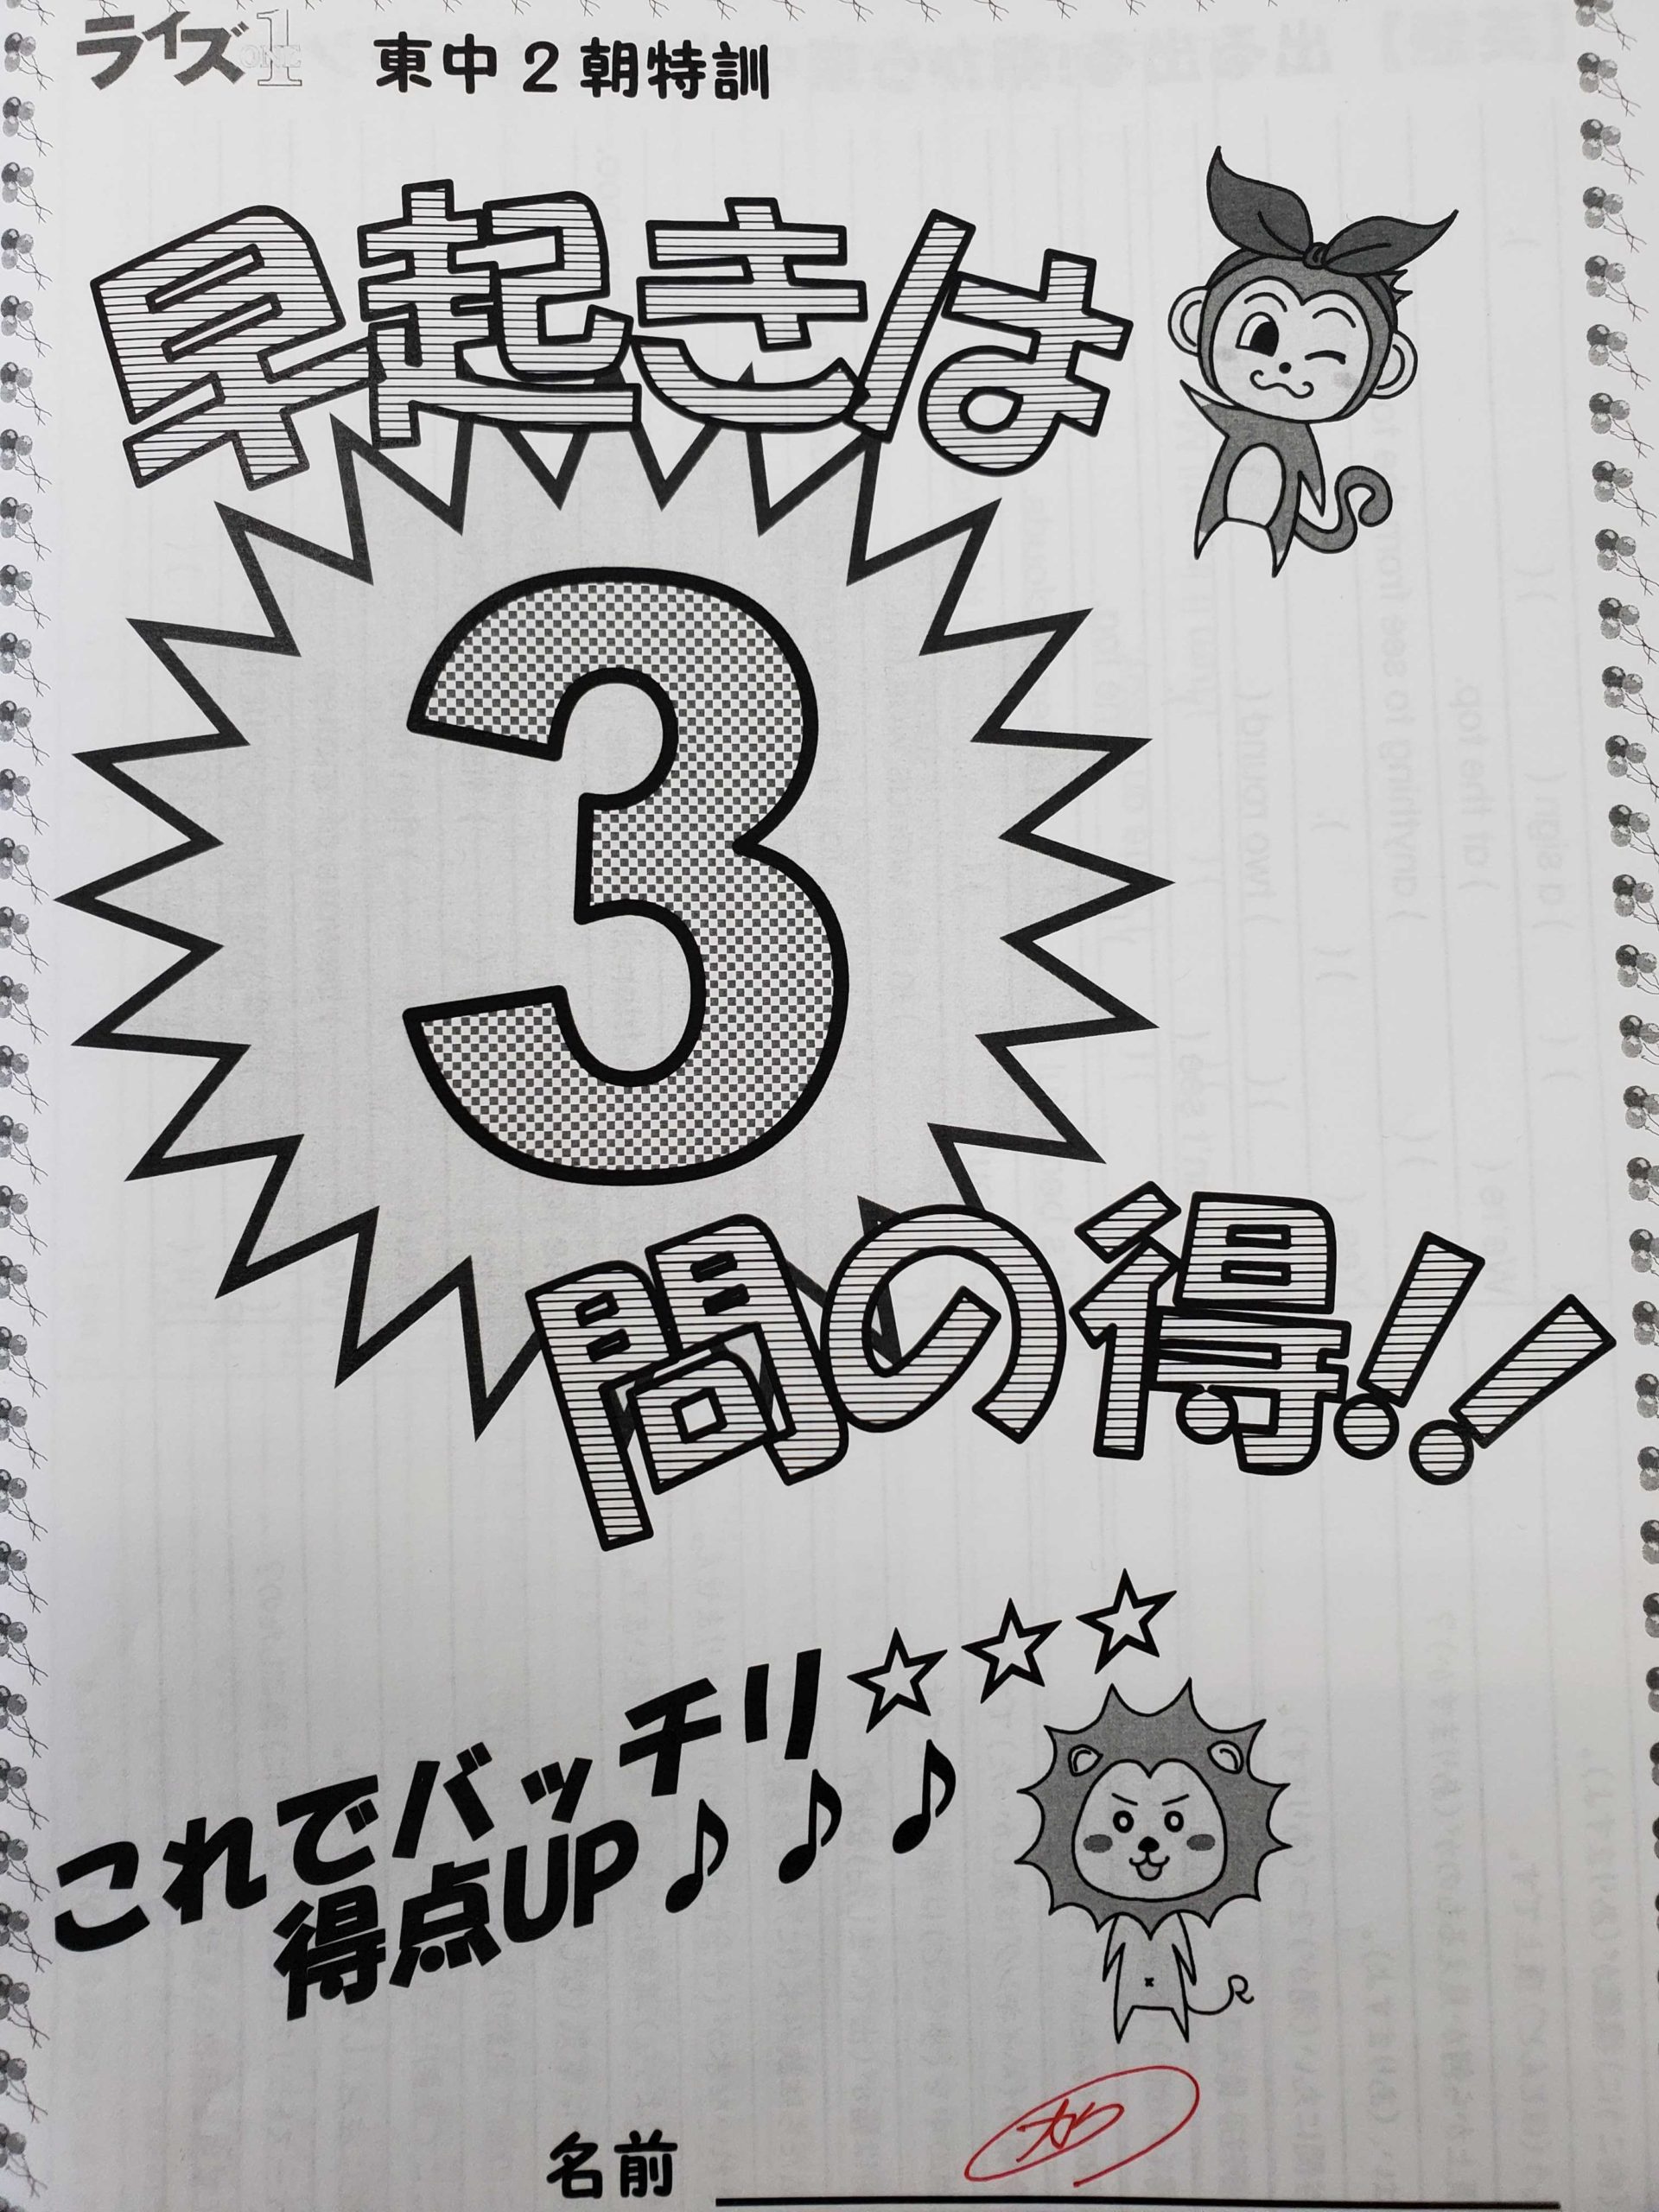 ライズ1 東中2朝特訓
早起きは
3
問の得!!
これでバッチリ☆☆☆
得点UP♪♪♪
名前